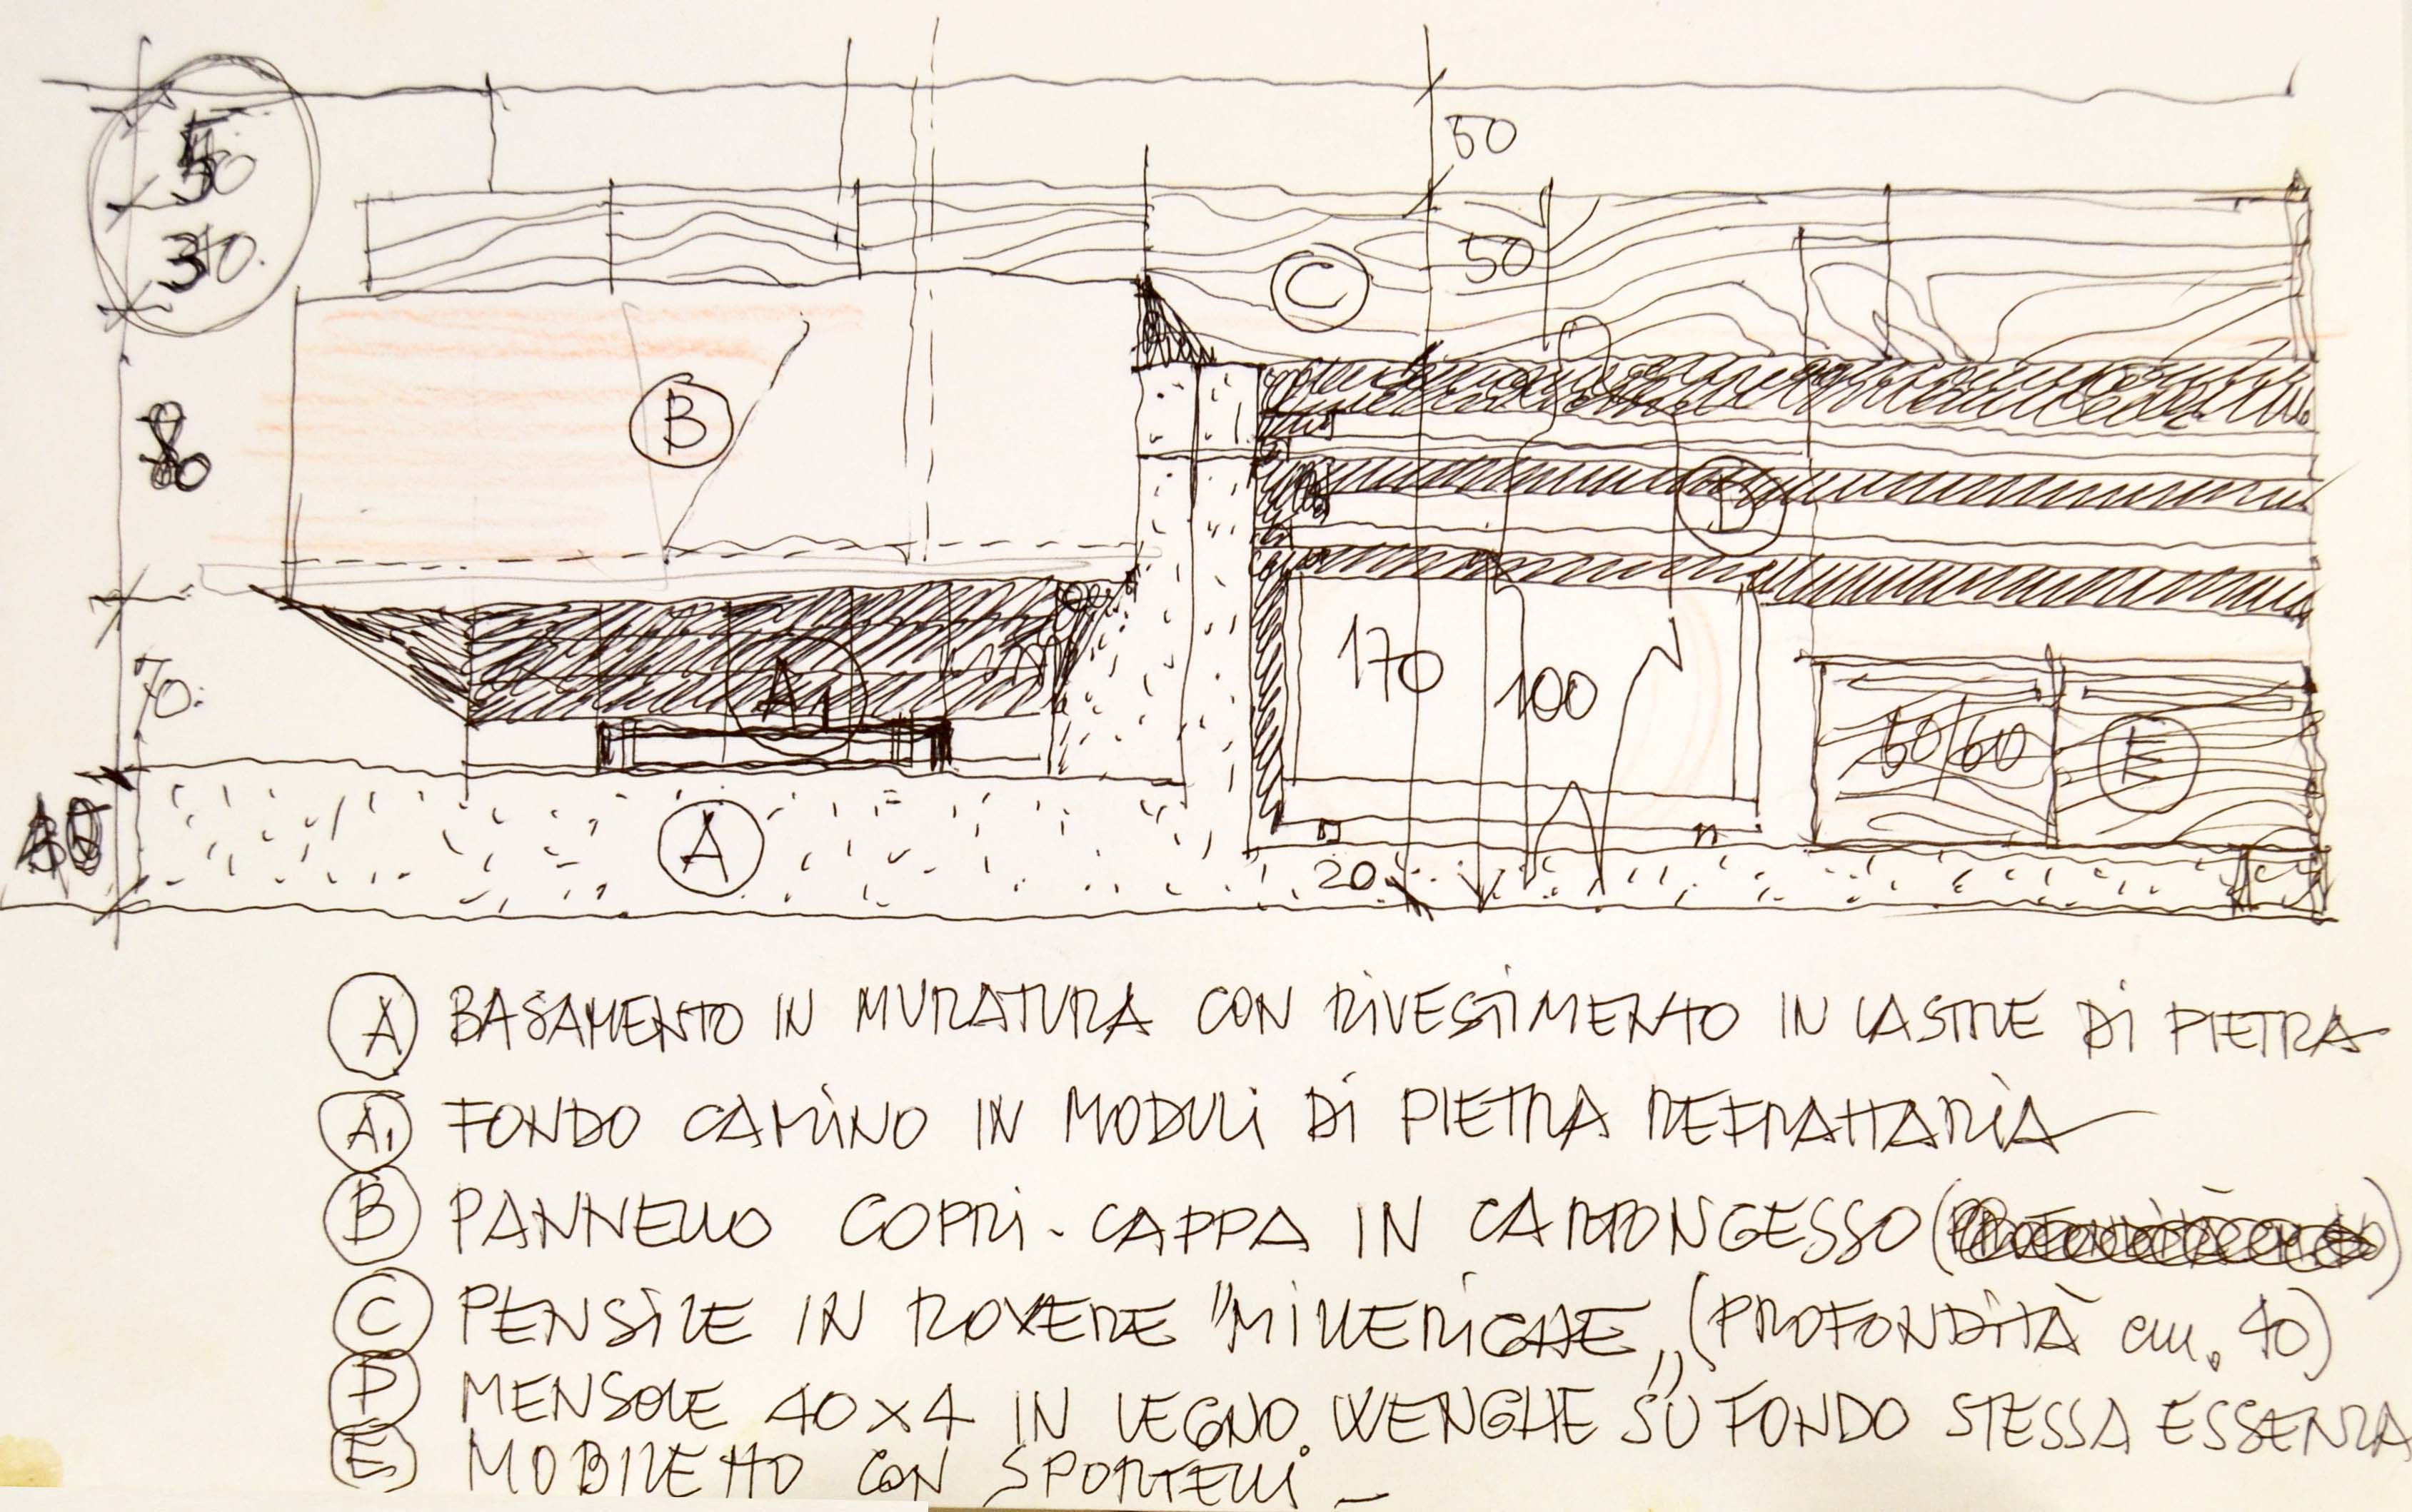 50
50
30.
C
80
B
D
70.
A1
170
100
50/60
E
A
20
A BASAMENTO IN MURATURA CON RIVESTIMENTO IN LASTRE DI PIETRA
A1 FONDO CAMINO IN MODULI DI PIETRA REFRATTARIA
B PANNELLO COPRI-CAPPA IN CARTONGESSO
C PENSILE IN ROVERE "MILLERIGHE" (PROFONDITÀ cm. 40)
D MENSOLE 40x4 IN LEGNO WENGHE SU FONDO STESSA ESSENZA
E MOBILETTO CON SPORTELLI -